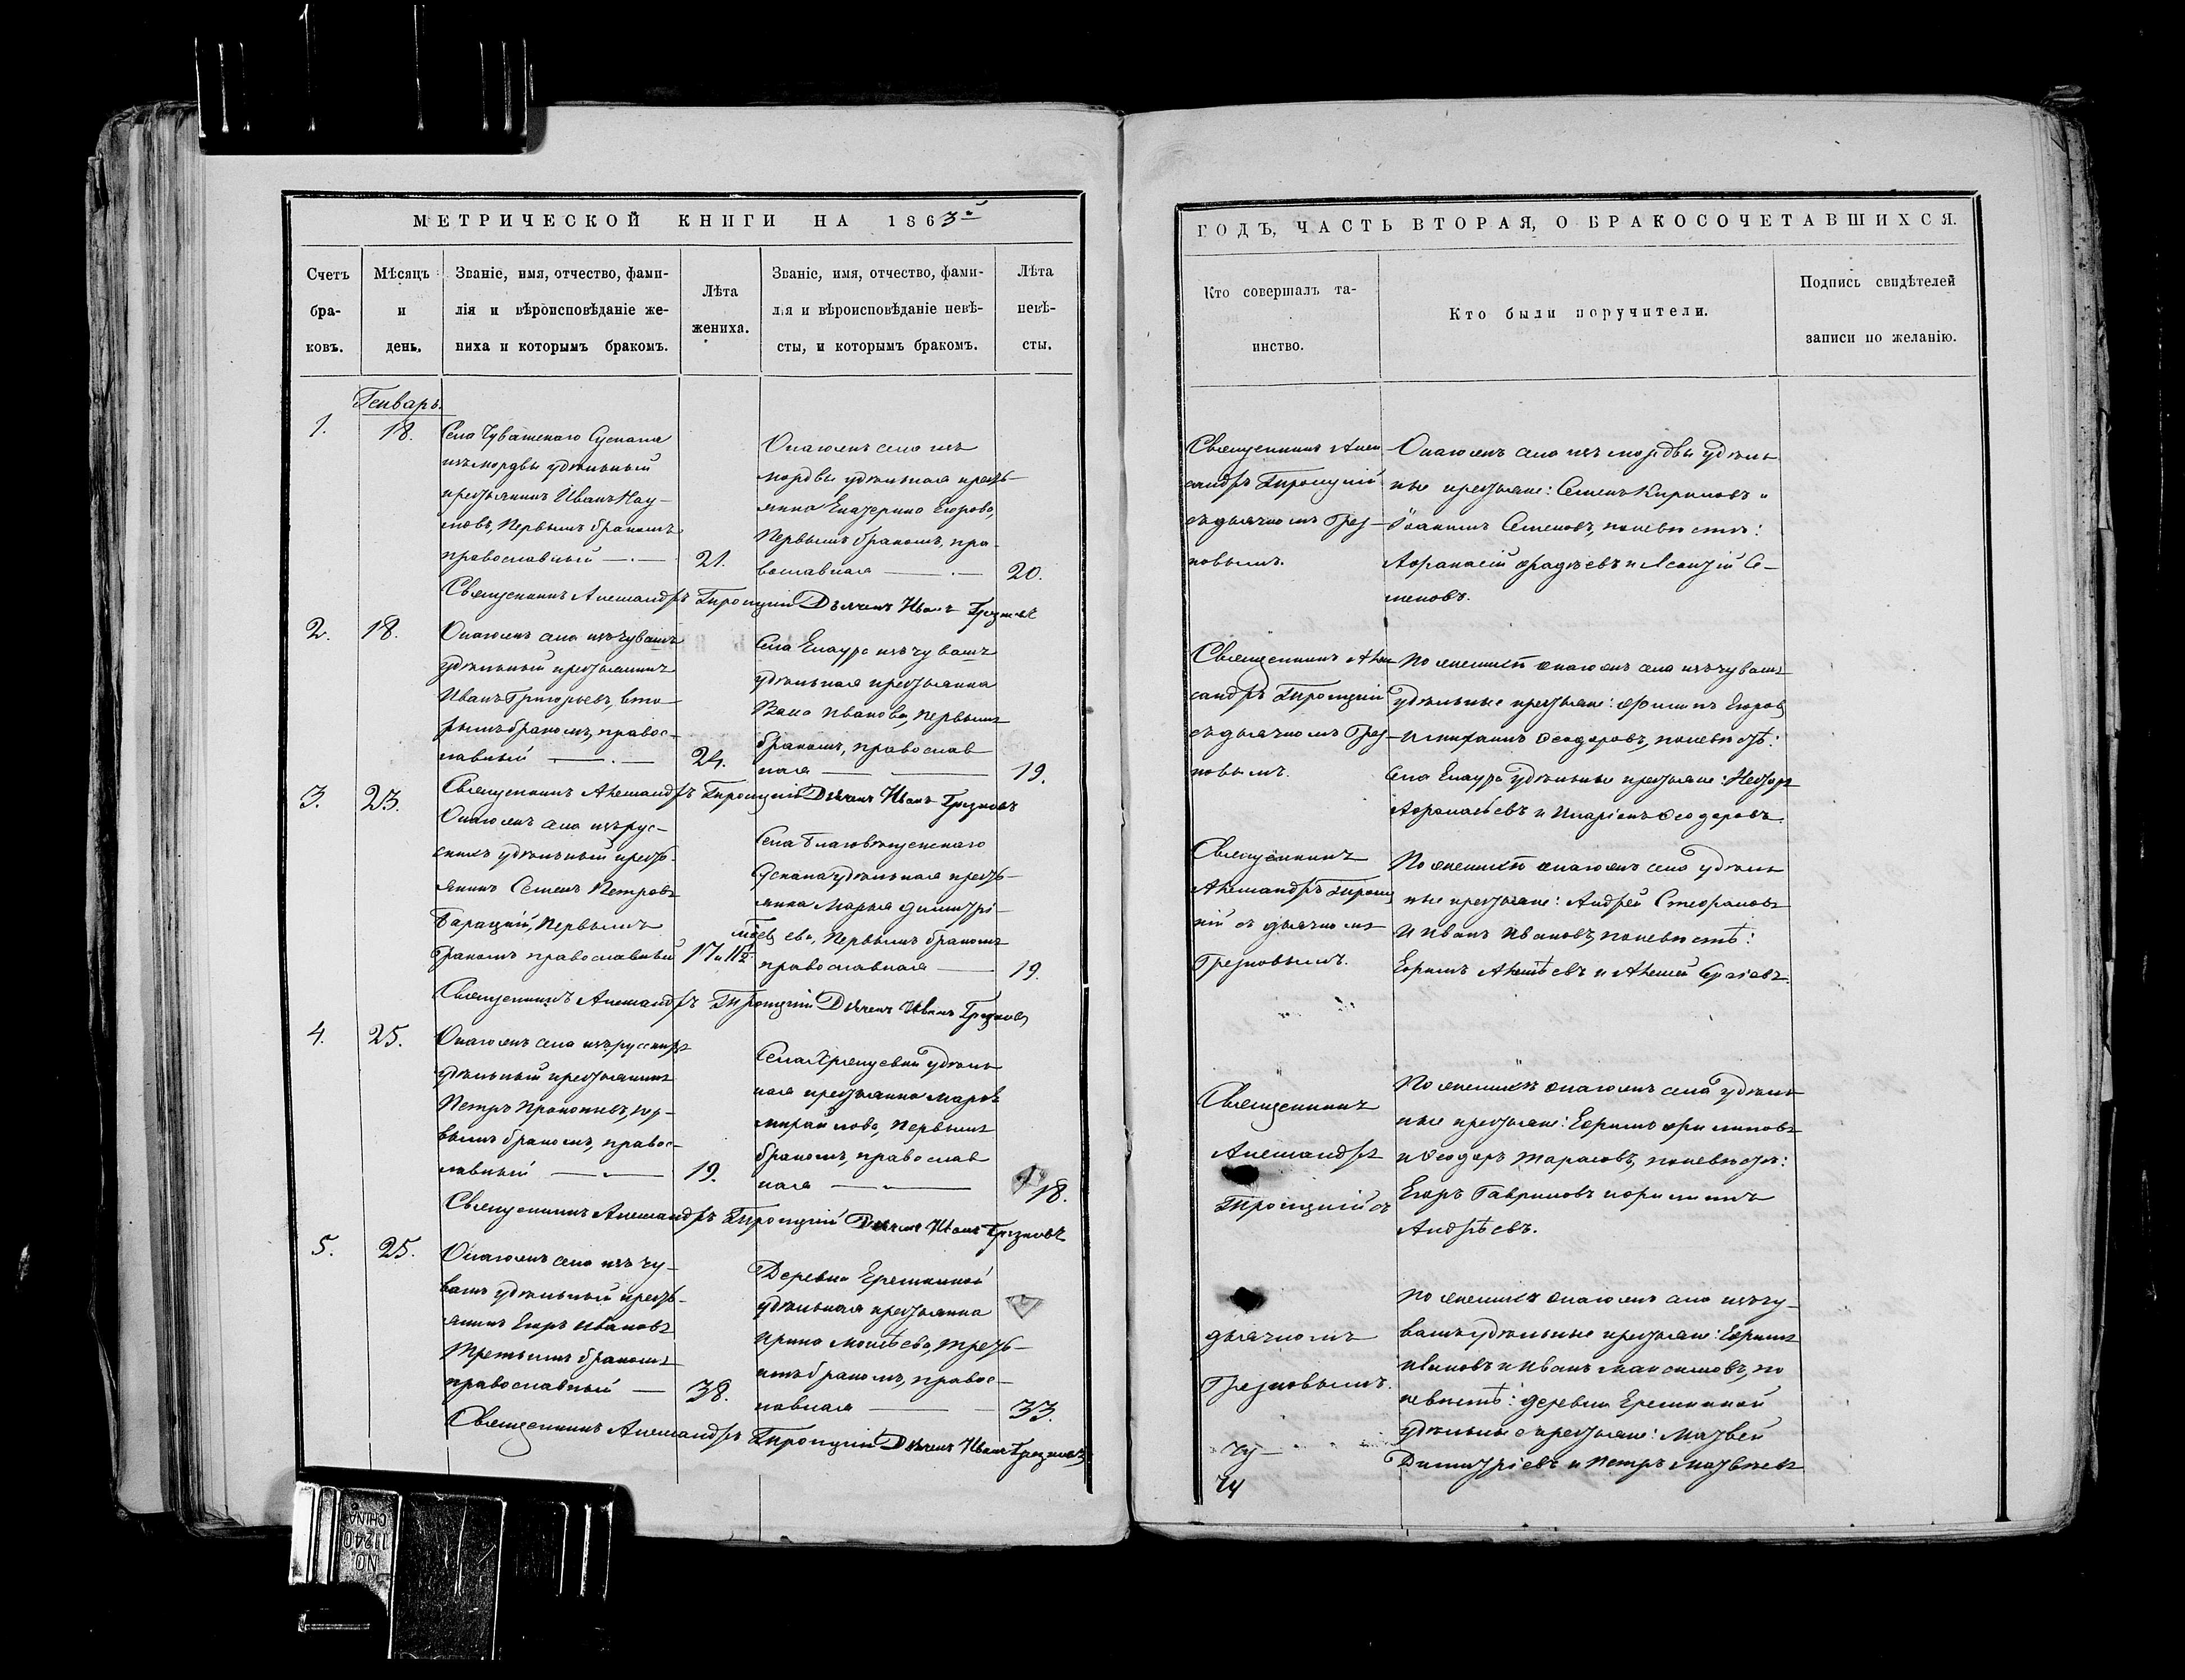 МЕТРИЧЕСКОЙ КНИГИ НА 1863й
Счетъ бра-ковъ.
Мѣсяцъ и день.
Званіе, имя, отчество, фами-
лія и вѣроисповѣданіе же-
ниха и которымъ бракомъ.
Лѣта
жениха.
Званіе, имя, отчество, фами-
лія и вѣроисповѣданіе невѣ-
сты, и которымъ бракомъ.
Лѣта
невѣ-
сты.
Генварь.
1.
18.
Села Чувашскаго Сускана
изъ мордвы удѣльный
крестьянинъ Иванъ Нау-
мовъ, Первымъ бракомъ
православный
21.
Онагожъ села изъ
мордвы удѣльная кресть-
янка Екатерина Егорова,
Первымъ бракомъ, пра-
вославная
20.
Священникъ Александръ Троицкій Дьячекъ Иванъ Грезновъ
2.
18.
Онагожъ села изъ чувашъ
удѣльный крестьянинъ
Иванъ Григорьевъ, вто-
рымъ бракомъ, правос-
лавный
24.
Села изъ чувашъ
удѣльная крестьянка
Иванова, Первымъ
бракомъ, православ
ная
19.
Священникъ Александръ Троицкій Дьячекъ Иванъ Грезновъ
3.
23.
Онагожъ села изъ рус-
скихъ удѣльный кресть-
янинъ Семенъ Петровъ
Первымъ
бракомъ православный
17 и 11
мѣс
Села Благовѣщенскаго
Сускана удѣльная кресть-
янка Марья Димитрі-
ева, Первымъ бракомъ
православная
19.
Священникъ Александръ Троицкій Дьячекъ Иванъ Грезновъ
4.
25.
Онагожъ села изъ русскихъ
удѣльный крестьянинъ
Петръ Прокопьевъ, пер-
вымъ бракомъ, правос-
лавный
19.
Села Хрящевки удѣль
ная крестьянка Марѳа
Михайлова, Первымъ
бракомъ, православ
ная
18.
Священникъ Александръ Троицкій Дьячекъ Иванъ Грезновъ
5.
25.
Онагожъ села изъ чу-
вашъ удѣльный кресть-
янинъ Егоръ Ивановъ
Третьимъ бракомъ
православный
38.
Деревни Еремкиной
удѣльная крестьянка
Ирина Моисѣева, треть-
имъ бракомъ, правос-
лавная
33.
Священникъ Александръ Троицкій Дьячекъ Иванъ Грезновъ
ГОДЪ, ЧАСТЬ ВТОРАЯ, О БРАКОСОЧЕТАВШИХСЯ.
Кто совершалъ та-
инство.
Кто были поручители.
Подпись свидѣтелей
записи по желанію.
Священникъ Алек
сандръ Троицкій
съ дьячкомъ Грез-
новымъ.
Онагожъ села изъ мордвы удѣль
ные крестьяне: Семенъ Кириловъ и
Іоакимъ Семеновъ, по невѣстѣ:
Аѳанасій Фадѣевъ и Леонтій Се-
меновъ.
Священникъ Алек
сандръ Троицкій
съ дьячкомъ Грез-
новымъ.
По женихѣ онагожъ села изъ чувашъ
удѣльные крестьяне: Филипъ Егоровъ
и Михаилъ Ѳеодоровъ, по невѣстѣ:
Села удѣльные крестьяне: Несторъ
Аѳанасьевъ и Иларіонъ Ѳеодоровъ.
Священникъ
Александръ Троиц
кій съ дьячкомъ
Грезновымъ.
По женихѣ онагожъ села удѣль
ные крестьяне: Андрей Стефановъ
и Иванъ Ивановъ, по невѣстѣ:
Ефимъ Алексѣевъ и Алексѣй Сергіевъ.
Священникъ
Александръ
Троицкій съ
дьячкомъ
Грезновымъ.
По женихѣ онагожъ села удѣль
ные крестьяне: Ефимъ Филиповъ
и Ѳеодоръ Тарасовъ, по невѣстѣ:
Егоръ Гавриловъ и Филипъ
Андрѣевъ.
По женихѣ онагожъ села изъ чу-
вашъ удѣльные крестьяне: Ефимъ
Ивановъ и Иванъ Максимовъ, по
невѣстѣ: деревни Еремкиной
удѣльные крестьяне: Матвей
Димитріевъ и Петръ Матвѣевъ
Чу-
Чу